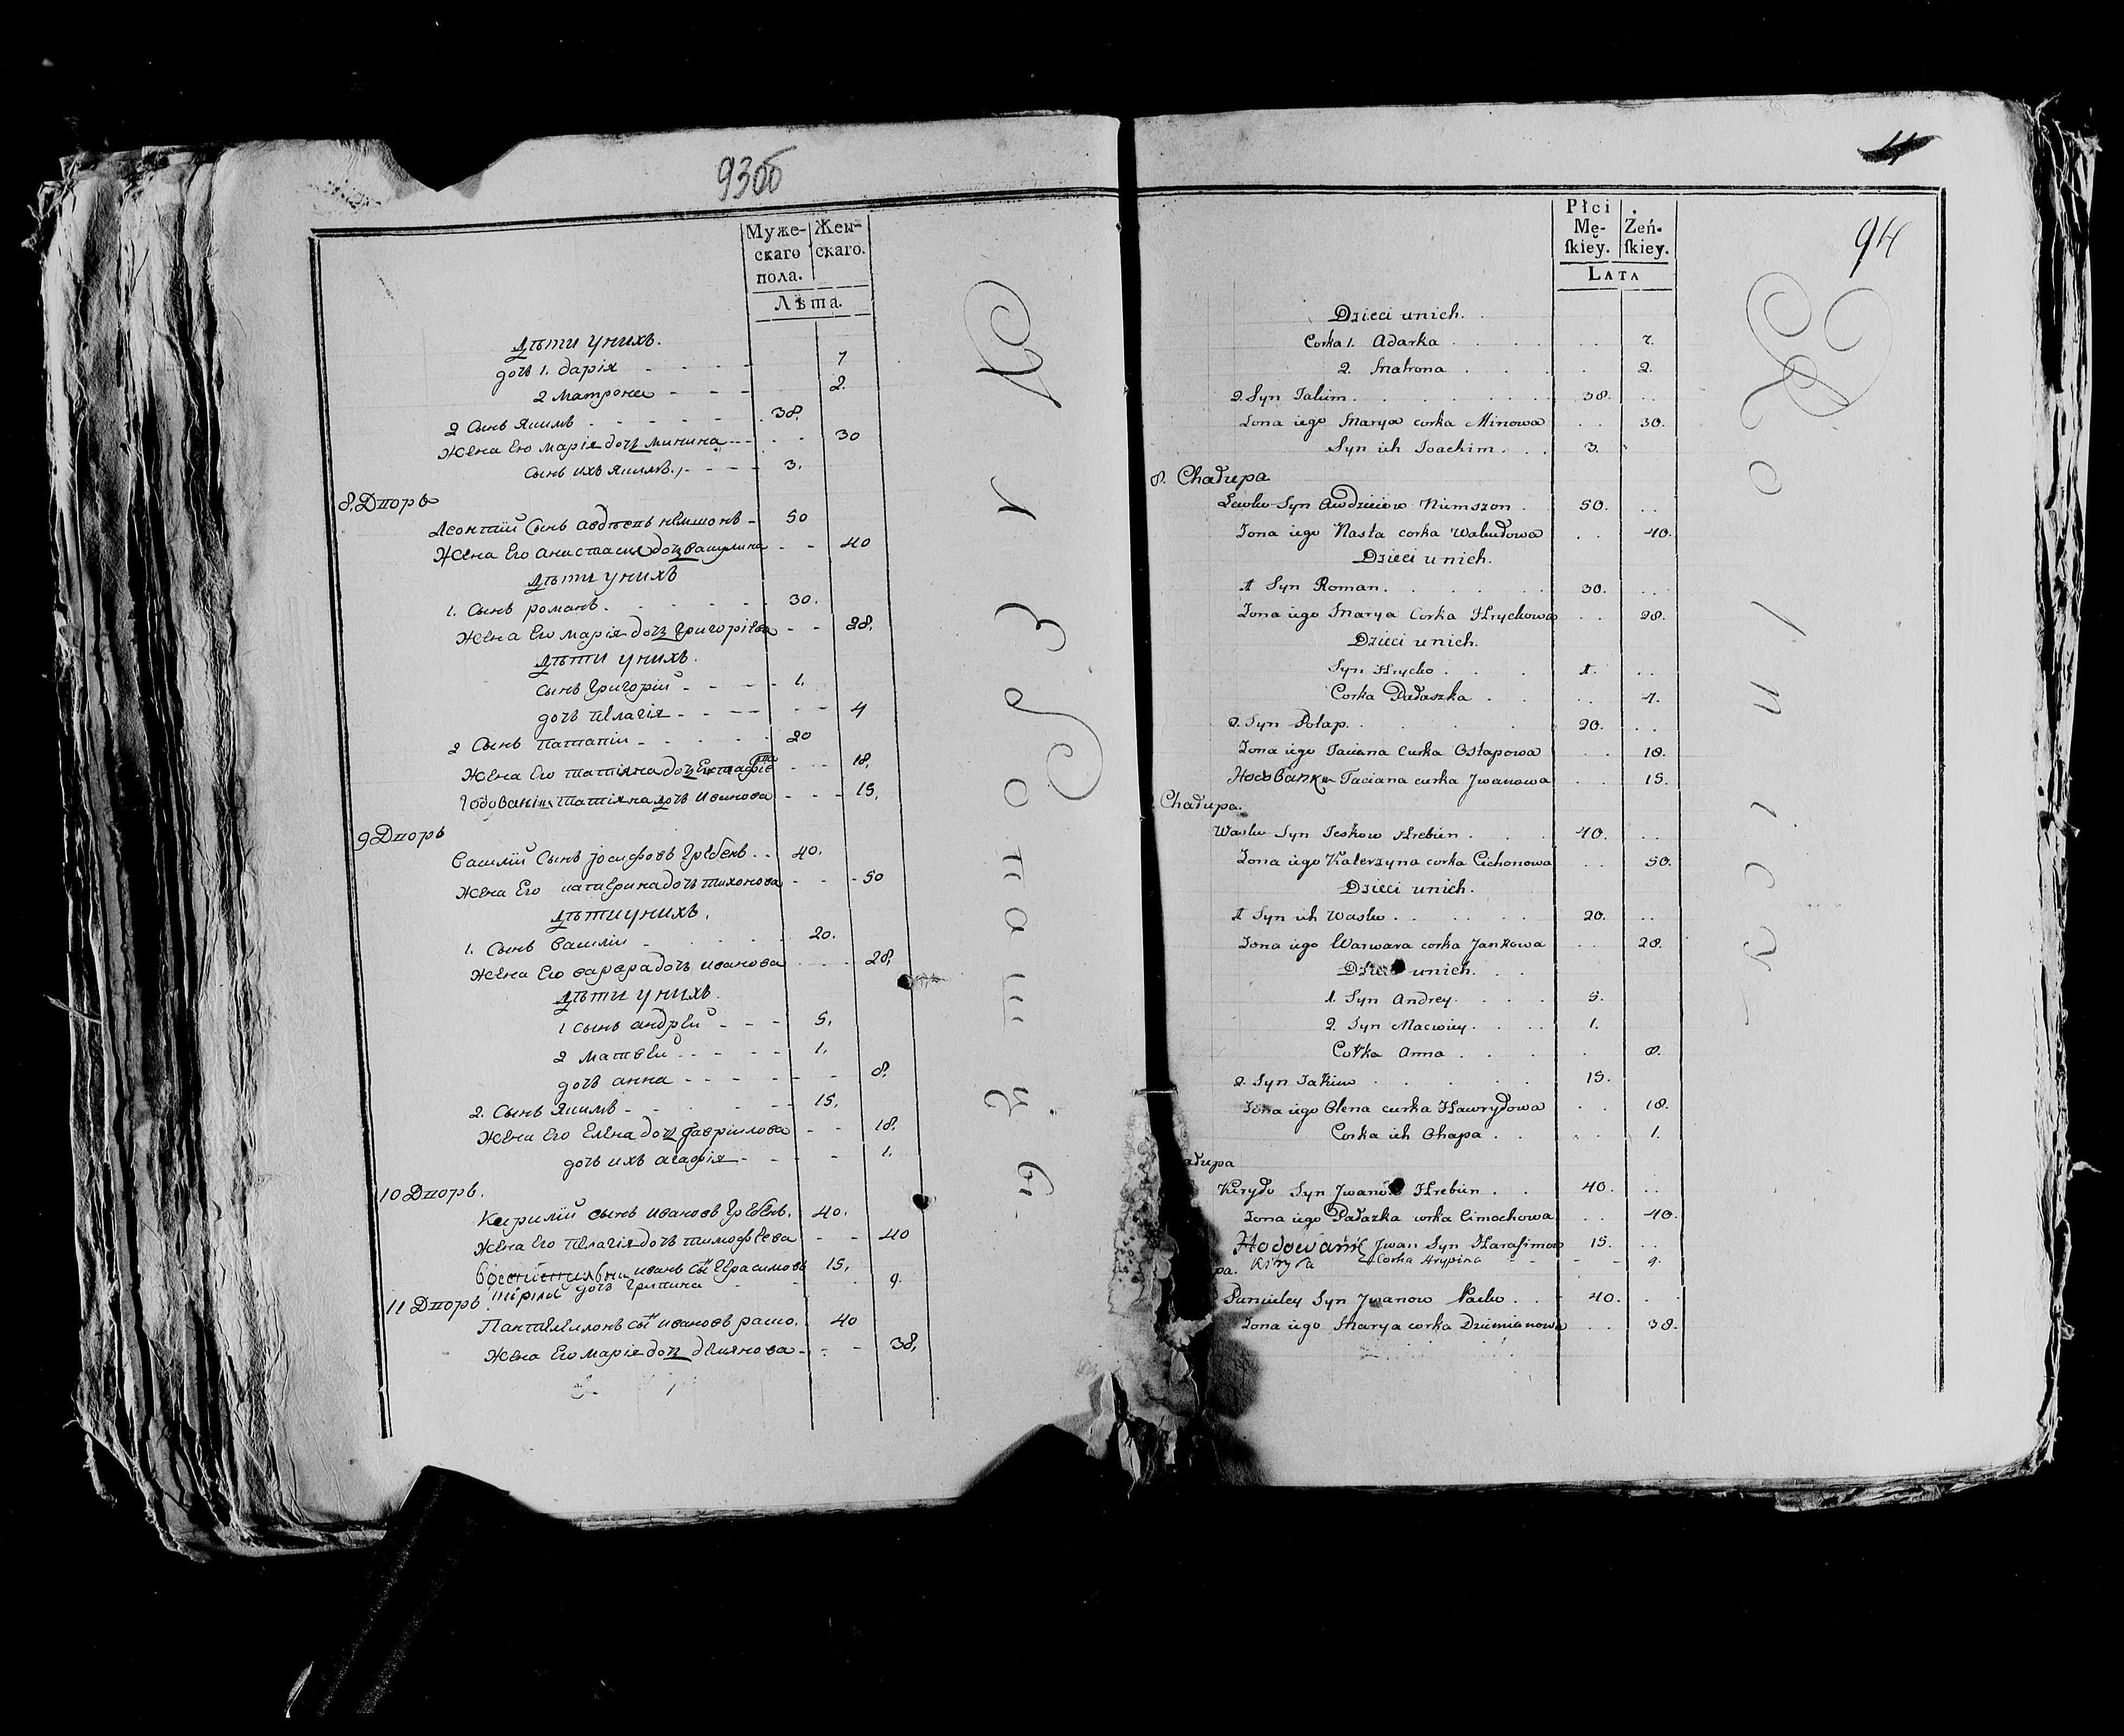 93об
Муже-
скаго
пола.
Жен-
скаго.
Лѣта.
Дѣти у нихъ.
дочь 1. дарія - - - - 7
2 Матрона - - - 2.
2 Сынъ Якимъ - - - - 38.
Жена Его Марія дочь минина - - - - 30
сынъ ихъ Якимъ - - - - 3.
8. Дворъ
Леонтій Сынъ Авдѣевъ - 50
Жена Его Анистасия дочь - - 40
Дѣти у нихъ
1. Сынъ романъ. . . . . . 30.
Жена Его марія дочь Григоріева - - 28.
Дѣти у нихъ.
Сынъ Григорій - - - - 1.
дочь Пелагія - - - - - - 4
2 Сынъ Патапій - - - - - 20
Жена Его татіяна дочь - - - 18.
татіяна дочь Иванова - - - 15.
9 Дворъ
Василій Сынъ Іосифовъ Гребень . . 40.
Жена Его катерина дочь тихонова - - - 50
Дѣти у нихъ.
1. Сынъ Василій - . . . . 20.
Жена Его варвара дочь иванова - - - 28.
Дѣти у нихъ.
1 сынъ андрей - - - 5.
2 матвей - - - - - 1.
дочь анна - - - - - - - 8.
2. Сынъ Якимъ - - - - - 15.
Жена Его Елена дочь гавріилова - - 18.
дочь ихъ агафія - - - - 1.
10 Дворъ.
Кирилій сынъ ивановъ Гребень. 40.
Жена Его Пелагія дочь тимофѣева - - 40
иванъ сы Герасимовъ 15.
дочь Грипина - - - 9.
11 Дворъ.
Пантелимонъ сы ивановъ 40
Жена Его марія дочь демянова - - - 38.
Ревизскаго
94
Płci
Mę-
ſkiey.
Żeń-
ſkiey.
LATA
Dzieci unich. .
Corka 1. Adarka . . . . . . 7.
2. Matrona . . . . . 2.
2. Syn Jakim . . . . . . . 38. . .
Zona iego Marya corka Minowa . . 30.
Syn ich Joachim . . . 3.
8. Chałupa
Lewko Syn Awdzieiow Niemszon . 50. . .
Zona iego Nasta corka . . 40.
Dzieci unich.
1 Syn Roman . . . . . . 30. . . .
Zona iego Marya Corka Hrychowa . . 28.
Dzieci unich.
Syn Hrycko . . . . 1. . .
Corka Pałaszka . . . . 4.
2. Syn Potap . . . . . 20. . .
Zona iego Taciana Curka Ostapowa . . 18.
Taciana curka Jwanowa . . 15.
Chałupa.
Wasko Syn Jeskow Hrebien . . . . 40. . .
Zona iego Katerzyna corka Cichonowa . . 50.
Dzieci unich.
1 Syn ich Wasko . . . . . . 20. . .
Zona iego Warwara corka Jankowa . . 28.
Dzieci unich. . .
1. Syn Andrey . . . . 5.
2. Syn Maciey . . . . 1.
Corka Anna . . . . . 8.
2. Syn Jakim . . . . . . 15.
Zona iego Olena curka Hawryłowa . . 18.
Corka ich Ohapa . . . . 1.
ałupa
Kiryło Syn Jwanow Hrebien . . 40. . .
Zona iego Pałazka corka Cimochowa . . 40.
Hodowanic Jwan Syn Harasimow 15. . .
pa. Corka Hrypina - - - - 9.
Syn Jwanow . . . 40. . .
Zona iego Marya corka Dziemianowa . . 38.